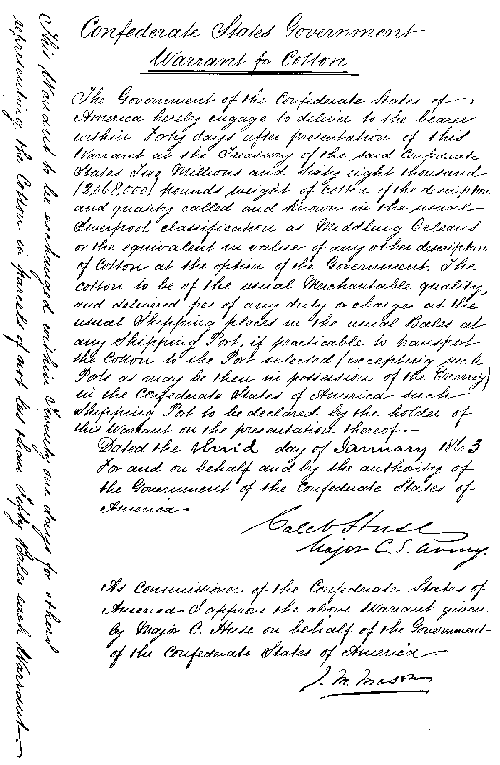 Confederate States Government
Warrant for Cotton
The Government of the Confederate States of
America hereby engage to deliver to the bearer
within Forty days after presentation of this
Warrant at the Treasury of the said Confederate
States Two Millions and sixty eight thousand
(2,068,000) pounds weight of Cotton of the description
and quality called and known in the usual
Liverpool classification as Middling Orleans
or the equivalent in value of any other description
of Cotton at the option of the Government. The
cotton to be of the usual Merchantable quality
and delivered free of any duty or charges at the
usual Shipping places in the usual Bales at
any Shipping Port, if practicable to transport
the Cotton to the Port selected (excepting such
Ports as may be then in possession of the Enemy)
in the Confederate States of America such
Shipping Port to be declared by the holder of
this Warrant on the presentation thereof.
Dated the third day of January 1863
For and on behalf and by the authority of
the Government of the Confederate States of
America
Caleb Huse
Major C. S. Army.
As Commissioner of the Confederate States of
America I approve the above Warrant given
by Major C. Huse on behalf of the Government
of the Confederate States of America
J. M. Mason
This Warrant to be exchanged within Twenty one days for others
representing the Cotton in parcels of not less than Fifty Bales each Warrant